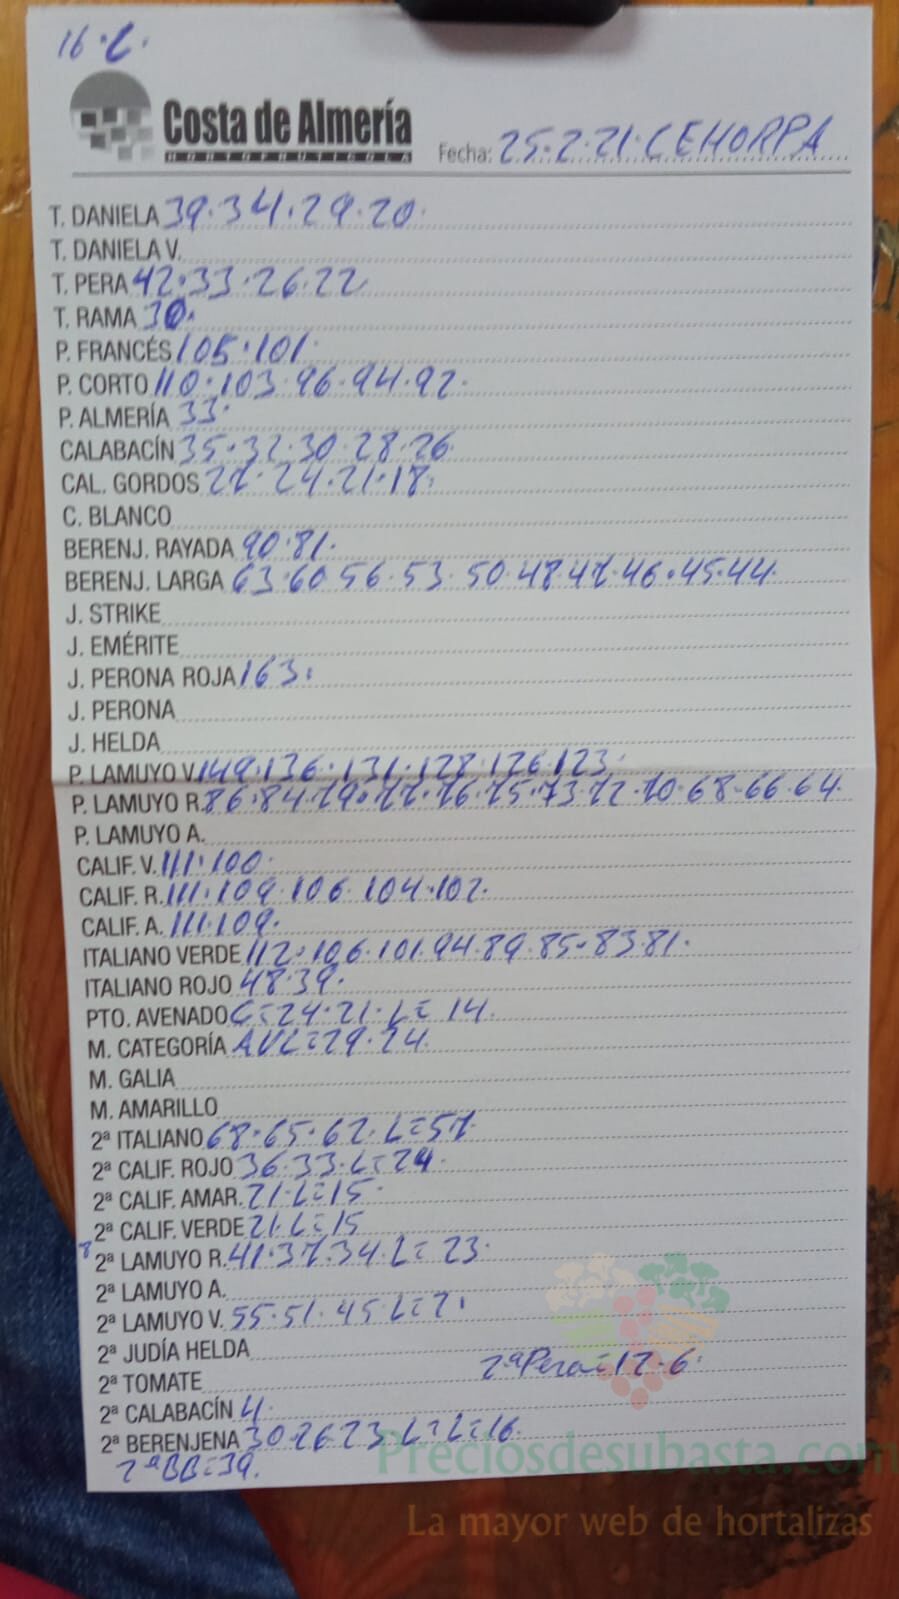 16.L.
Costa de Almería
HORTOFRUTICOLA
Fecha: 25.2.21.CEHORPA
T. DANIELA 39.34.29.20.
T. DANIELA V.
T. PERA 42.33.26.22.
T. RAMA 30.
P. FRANCÉS 105.101.
P. CORTO 110.103.96.94.92.
P. ALMERÍA 33.
CALABACÍN 35.32.30.28.26.
CAL. GORDOS 27.24.21.18.
C. BLANCO
BERENJ. RAYADA 90.81.
BERENJ. LARGA 63.60.56.53.50.48.47.46.45.44.
J. STRIKE
J. EMÉRITE
J. PERONA ROJA 163.
J. PERONA
J. HELDA
P. LAMUYO V. 149.136.131.128.126.123.
P. LAMUYO R. 86.84.79.77.76.75.73.72.70.68.66.64.
P. LAMUYO A.
CALIF. V. 111.100.
CALIF. R. 111.109.106.104.102.
CALIF. A. 111.109.
ITALIANO VERDE 112.106.101.94.89.85.83.81.
ITALIANO ROJO 48.39.
PTO. AVENADO G=24.21.L=14.
M. CATEGORÍA AVL=29.24.
M. GALIA
M. AMARILLO
2ª ITALIANO 68.65.62.L=57.
2ª CALIF. ROJO 36.33.L=24.
2ª CALIF. AMAR. 21.L=15.
2ª CALIF. VERDE 21.L=15
2ª LAMUYO R. 41.37.34.L=23.
2ª LAMUYO A.
2ª LAMUYO V. 55.51.45.L=
2ª JUDÍA HELDA
2ª TOMATE 2ªPera=12.6.
2ª CALABACÍN 4.
2ª BERENJENA 30.26.23.L=L=16.
2ªBB=39.
Preciosdesubasta.com
La mayor web de hortalizas